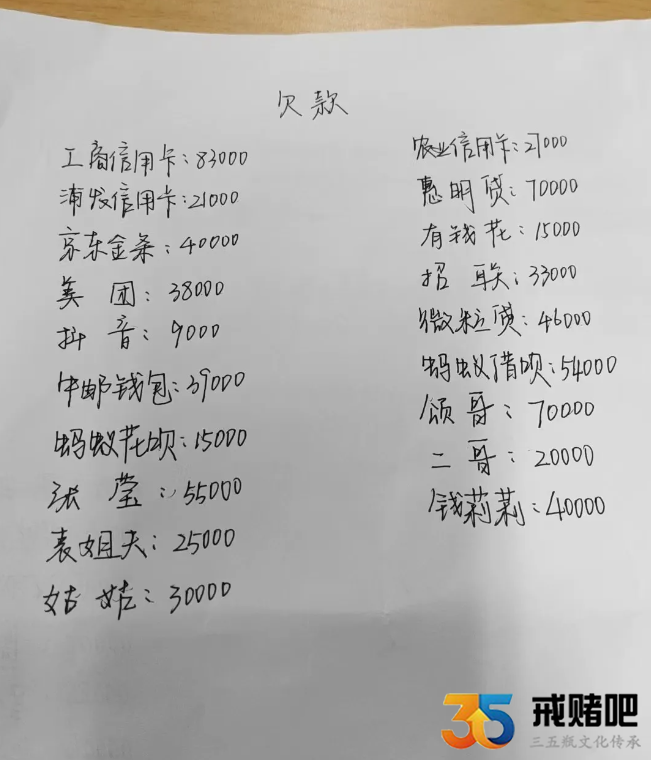 欠款
工商信用卡:83000
浦发信用卡:21000
京东金条:40000
美团:38000
抖音:9000
中邮钱包:39000
蚂蚁花呗:15000
张莹:55000
表姐夫:25000
姑姑:30000
农业信用卡:27000
惠明贷:70000
有钱花:15000
招联:33000
微粒贷:46000
蚂蚁借呗:54000
颂哥:70000
二哥:20000
钱莉莉:40000
35 戒赌吧
三五瓶文化传承